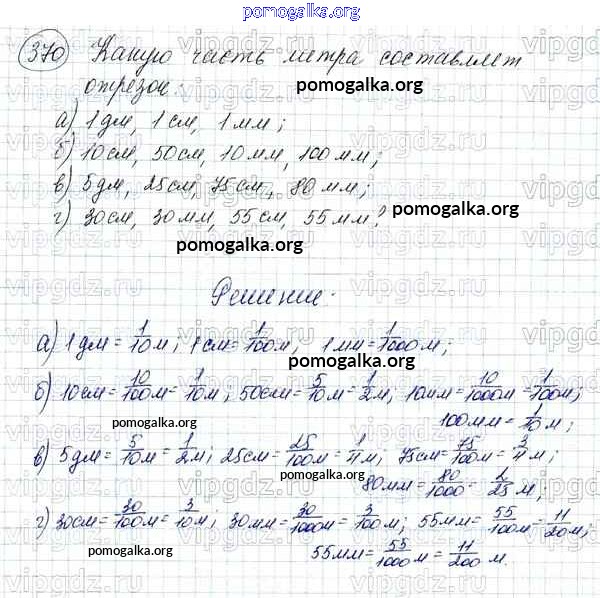 pomogalka.org
370 Какую часть метра составляет
отрезок:
pomogalka.org
а) 1 дм, 1 см, 1 мм;
б) 10 см, 50 см, 10 мм, 100 мм;
в) 5 дм, 25 см, 75 см, 80 мм;
г) 30 см, 30 мм, 55 см, 55 мм?
pomogalka.org
pomogalka.org
Решение:
а) 1 дм = 1/10 м; 1 см = 1/100 м, 1 мм = 1/1000 м;
pomogalka.org
б) 10 см = 10/100 м = 1/10 м; 50 см = 5/10 м = 1/2 м; 10 мм = 10/1000 м = 1/100 м;
100 мм = 1/10 м;
pomogalka.org
в) 5 дм = 5/10 м = 1/2 м; 25 см = 25/100 м = 1/4 м; 75 см = 75/100 м = 3/4 м;
80 мм = 80/1000 = 2/25 м;
pomogalka.org
г) 30 см = 30/100 м = 3/10 м; 30 мм = 30/1000 м = 3/100 м; 55 мм = 55/100 м = 11/20 м;
pomogalka.org
55 мм = 55/1000 м = 11/200 м.
vipgdz.ru